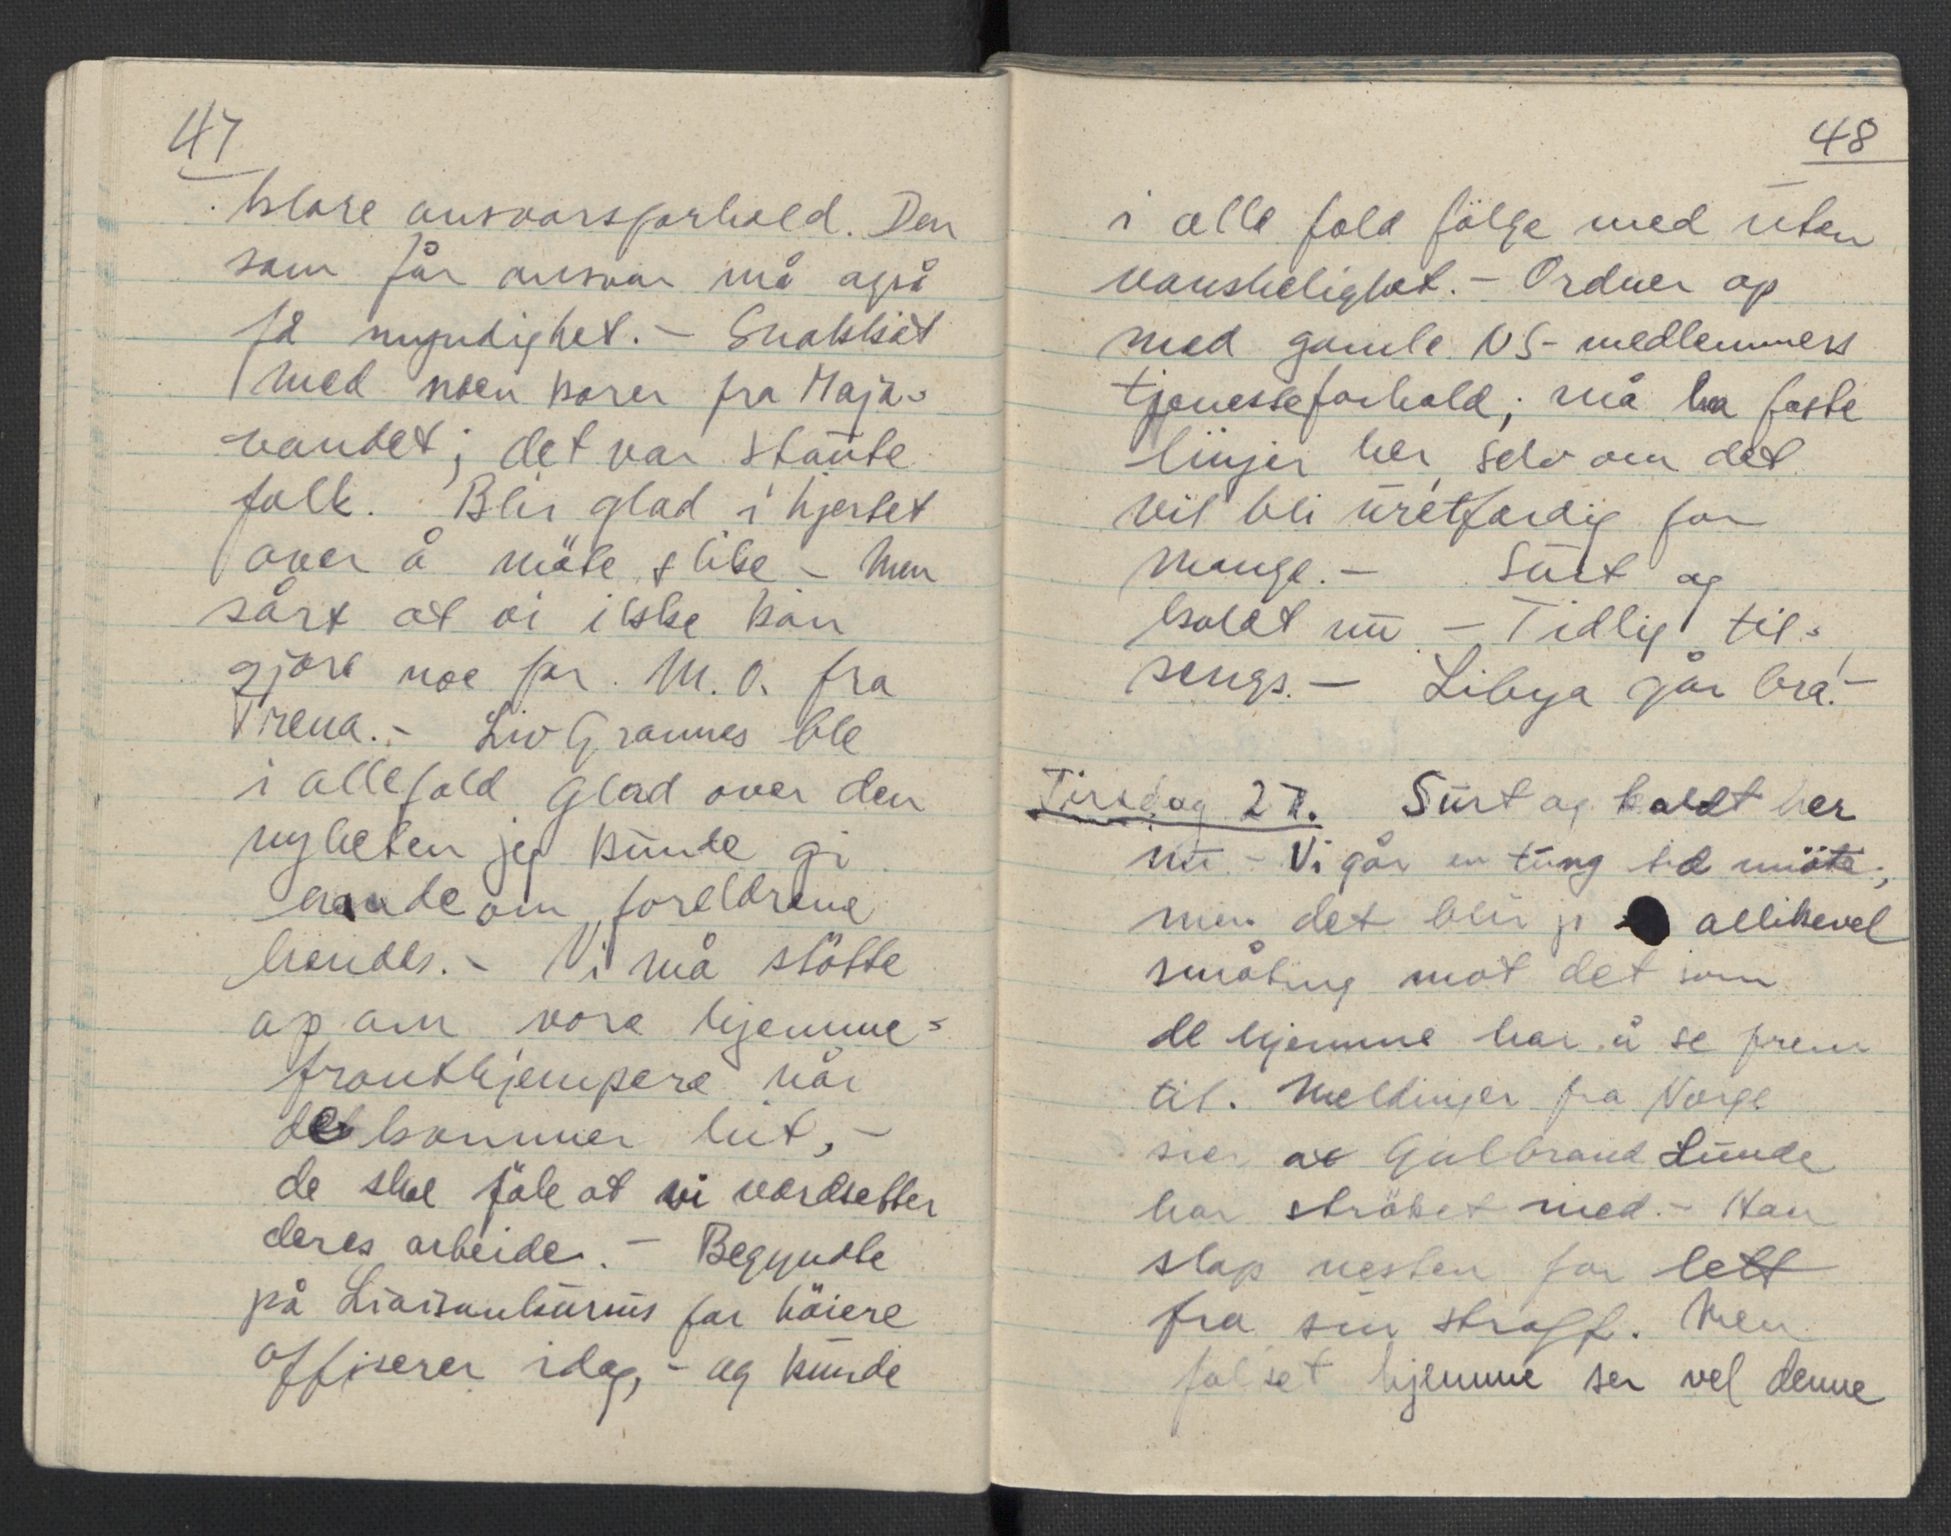 47
klare ansvarsforhold. Den
som får ansvar må også
få myndighet. - Snakket
med noen karer fra Maja-
vandet; det var staute
folk. Blir glad i hjertet
over å möte slike - men
sårt at vi ikke kan
gjöre noe for M.O. fra
Trena. - Liv Grannes ble
i allefald glad over den
nyheten jeg kunde gi
hende om foreldrene
hendes. - Vi må stötte
op om vore hjemme-
frontkjempere når
de kommer hit, -
de skal föle at vi verdsetter
deres arbeide. - Begyndte
på Liaisonkursus for höiere
offiserer idag, - og kunde
48
i alle fald fölge med uten
vanskelighet. - Ordner op
med gamle NS-medlemmers
tjenesteforhold; må ha faste
linjer her, selv om det
vil bli uretfærdig for
mange. - Surt og
kaldt nu - Tidlig til-
sengs. - Libya går bra! -
Tirsdag 27. Surt og kaldt her
nu - Vi går en tung tid möte;
men det blir jo allikevel
småting mot det som
de hjemme har å se frem
til. Meldinger fra Norge
sier at Gulbrand Lunde
har ströket med. - Han
slap nesten for lett
fra sin straff. Men
folket hjemme ser vel denne